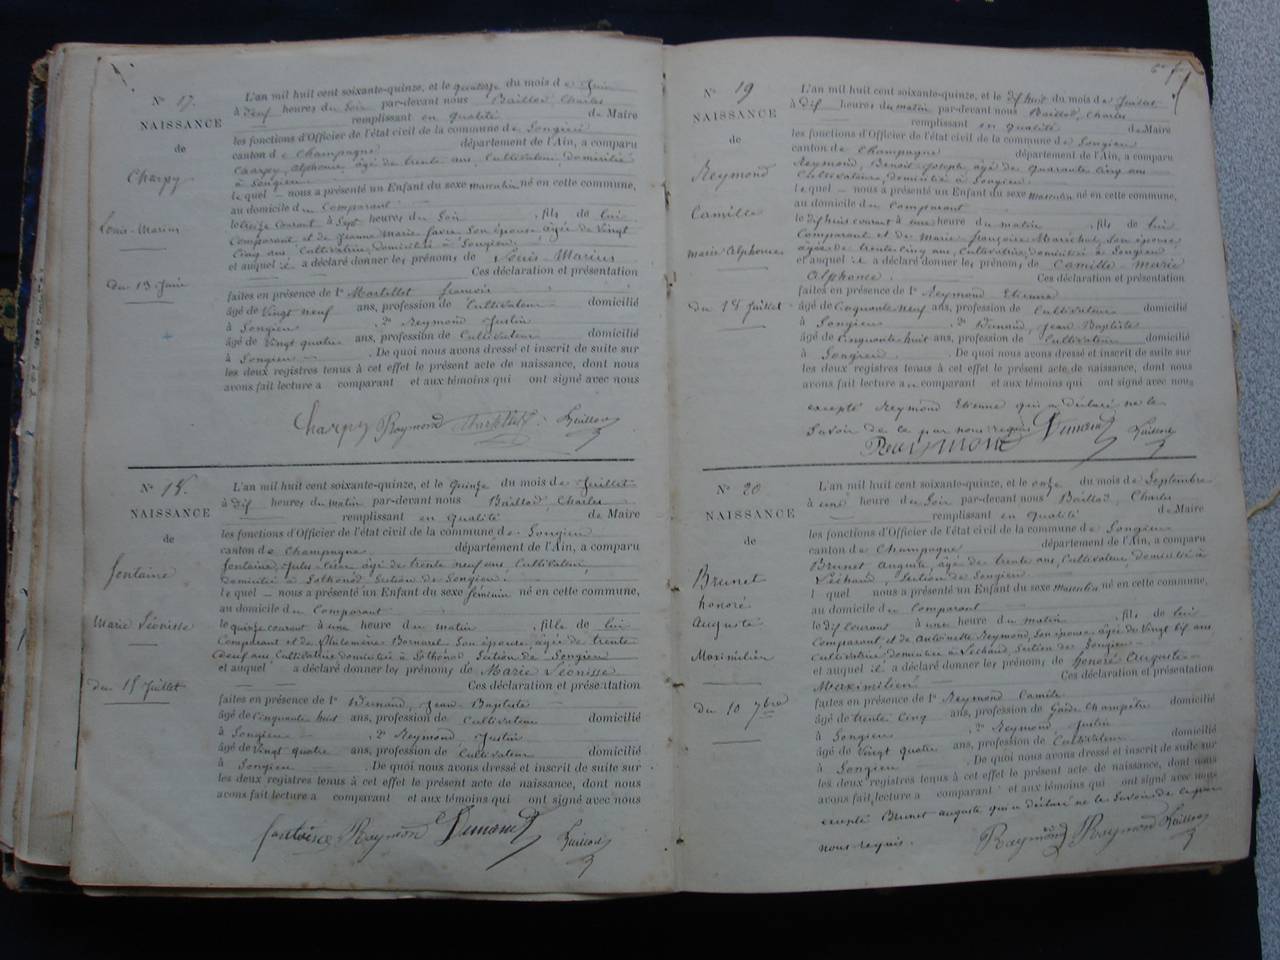 Nº 17.
NAISSANCE
de
Charpy
Louis-Marius
du 13 Juin
L'an mil huit cent soixante-quinze, et le quatorze du mois de Juin
à neuf heures du Soir par-devant nous Baillod, Charles
remplissant en qualité de Maire
les fonctions d'Officier de l'état civil de la commune de Songieu
canton de Champagne département de l'Ain, a comparu
Charpy, Alphonse âgé de trente ans, Cultivateur, domicilié
à Songieu
lequel nous a présenté un Enfant du sexe masculin né en cette commune,
au domicile du Comparant
le treize courant à Sept heures du Soir, fils de lui
Comparant et de Jeanne Marie favre Son épouse, âgée de Vingt
Cinq ans, Cultivatrice, domiciliée à Songieu
et auquel il a déclaré donner les prénoms de Louis-Marius
Ces déclaration et présentation
faites en présence de 1º Martellet françois
âgé de Vingt neuf ans, profession de Cultivateur domicilié
à Songieu, 2º Reymond Justin
âgé de Vingt quatre ans, profession de Cultivateur domicilié
à Songieu. De quoi nous avons dressé et inscrit de suite sur
les deux registres tenus à cet effet le présent acte de naissance, dont nous
avons fait lecture a comparant et aux témoins qui ont signé avec nous
Charpy Raymond Martellet Baillod
Nº 18.
NAISSANCE
de
fontaine
Marie Léonisse
du 15 Juillet
L'an mil huit cent soixante-quinze, et le quinze du mois de Juillet
à dix heures du matin par-devant nous Baillod, Charles
remplissant en qualité de Maire
les fonctions d'Officier de l'état civil de la commune de Songieu
canton de Champagne département de l'Ain, a comparu
fontaine, Jules âgé de trente neuf ans, Cultivateur,
domicilié à Sothonod Section de Songieu.
lequel nous a présenté un Enfant du sexe féminin né en cette commune,
au domicile du Comparant
le quinze courant à une heure du matin, fille de lui
Comparant et de Philomène Bornarel Son épouse, âgée de trente
neuf ans, Cultivatrice domiciliée à Sothonod Section de Songieu
et auquel a déclaré donner les prénoms de Marie Léonisse
Ces déclaration et présentation
faites en présence de 1º Dumand, Jean Baptiste
âgé de Cinquante huit ans, profession de Cultivateur domicilié
à Songieu, 2º Reymond Justin
âgé de Vingt quatre ans, profession de Cultivateur domicilié
à Songieu. De quoi nous avons dressé et inscrit de suite sur
les deux registres tenus à cet effet le présent acte de naissance, dont nous
avons fait lecture a comparant et aux témoins qui ont signé avec nous
fontaine Raymond Baillod
Nº 19
NAISSANCE
de
Reymond
Camille
marie Alphonse
du 18 Juillet
L'an mil huit cent soixante-quinze, et le dix huit du mois de Juillet
à dix heures du matin par-devant nous Baillod, Charles
remplissant en qualité de Maire
les fonctions d'Officier de l'état civil de la commune de Songieu
canton de Champagne département de l'Ain, a comparu
Reymond, Benoit-Joseph âgé de quarante cinq ans
Cultivateur, domicilié à Songieu
lequel nous a présenté un Enfant du sexe masculin né en cette commune,
au domicile du Comparant
le dix huit courant à une heure du matin, fils de lui
Comparant et de Marie françoise Maréchal, Son épouse,
âgée de trente cinq ans, Cultivatrice, domiciliée à Songieu
et auquel il a déclaré donner les prénoms de Camille-marie
Alphonse. Ces déclaration et présentation
faites en présence de 1º Reymond Etienne
âgé de Cinquante neuf ans, profession de Cultivateur domicilié
à Songieu, 2º Dumand, Jean Baptiste
âgé de Cinquante huit ans, profession de Cultivateur domicilié
à Songieu. De quoi nous avons dressé et inscrit de suite sur
les deux registres tenus à cet effet le présent acte de naissance, dont nous
avons fait lecture au comparant et aux témoins qui ont signé avec nous
excepté Reymond Etienne qui a déclaré ne le
Savoir de ce par nous requis
Reymond Baillod
Nº 20
NAISSANCE
de
Brunet
honoré
Auguste
Maximilien
du 10 7bre
L'an mil huit cent soixante-quinze, et le onze du mois de Septembre
à une heure du Soir par-devant nous Baillod, Charles
remplissant en qualité de Maire
les fonctions d'Officier de l'état civil de la commune de Songieu
canton de Champagne département de l'Ain, a comparu
Brunet Auguste, âgé de trente ans, Cultivateur, domicilié à
Léchaud, Section de Songieu
l quel nous a présenté un Enfant du sexe masculin né en cette commune,
au domicile du Comparant
le dix courant à une heure du matin, fils de lui
Comparant, et de Antoinette Reymond, Son épouse âgée de Vingt six ans
Cultivatrice, domiciliée à Lechaud, Section de Songieu
et auquel il a déclaré donner les prénoms de honoré Auguste
Maximilien Ces déclaration et présentation
faites en présence de 1º Reymond Camille
âgé de trente Cinq ans, profession de Garde Champêtre domicilié
à Songieu, 2º Reymond Justin
âgé de Vingt quatre ans, profession de Cultivateur domicilié
à Songieu. De quoi nous avons dressé et inscrit de suite sur
les deux registres tenus à cet effet le présent acte de naissance, dont nous
avons fait lecture a comparant et aux témoins qui ont signé avec nous
excepté Brunet auguste qui a déclaré ne le Savoir de ce par
nous requis.
Raymond Raymond Baillod